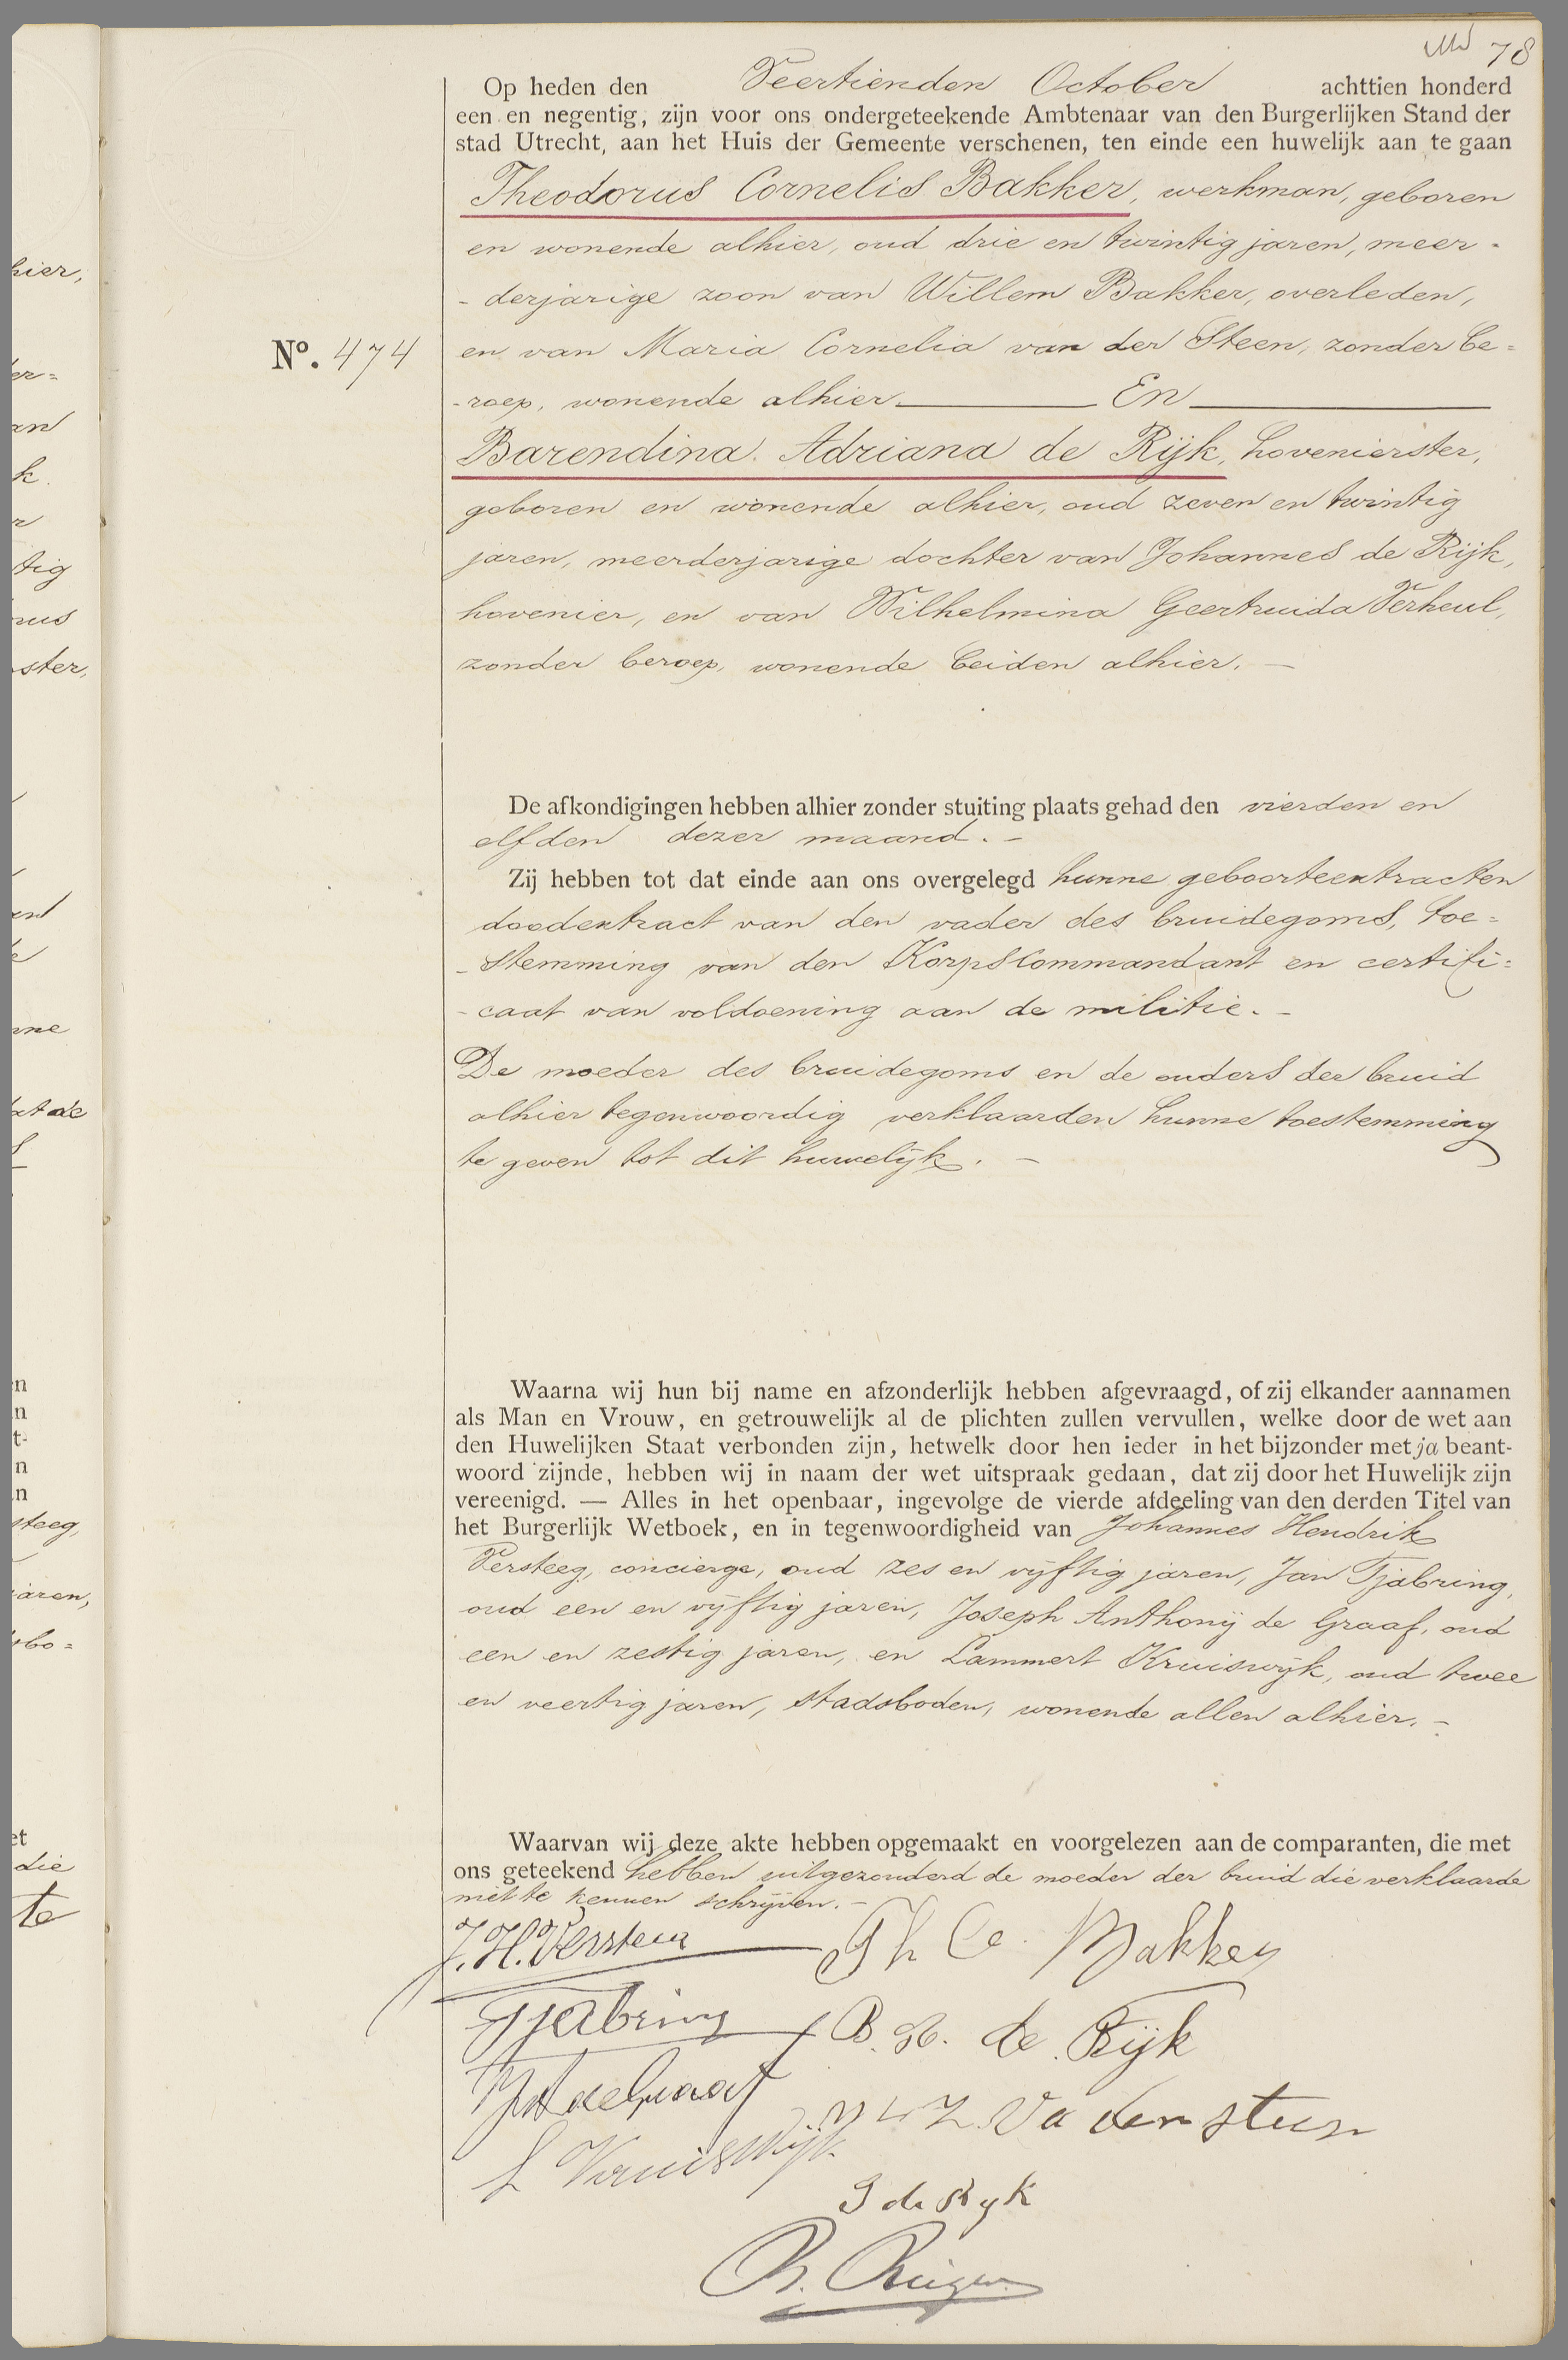 78
Op heden den Veertienden October achttien honderd
een en negentig, zijn voor ons ondergeteekende Ambtenaar van den Burgerlijken Stand der
stad Utrecht, aan het Huis der Gemeente verschenen, ten einde een huwelijk aan te gaan
Theodorus Cornelis Bakker, werkman, geboren
en wonende alhier, oud drie en twintig jaren, meer-
-derjarige zoon van Willem Bakker, overleden,
No. 474
en van Maria Cornelia van der Steen, zonder be=
-roep, wonende alhier. En
Barendina Adriana de Rijk, hovenierster,
geboren en wonende alhier, oud zeven en twintig
jaren, meerderjarige dochter van Johannes de Rijk,
hovenier, en van Wilhelmina Geertruida Verheul,
zonder beroep, wonende beiden alhier. —
De afkondigingen hebben alhier zonder stuiting plaats gehad den vierden en
elfden dezer maand. -
Zij hebben tot dat einde aan ons overgelegd hunne geboorteextracten
doodextract van den vader des bruidegoms, toe=
-stemming van den Korpscommandant en certifi=
-caat van voldoening aan de militie. -
De moeder des bruidegoms en de ouders der bruid
alhier tegenwoordig verklaarden hunne toestemming
te geven tot dit huwelijk. -
Waarna wij hun bij name en afzonderlijk hebben afgevraagd, of zij elkander aannamen
als Man en Vrouw, en getrouwelijk al de plichten zullen vervullen, welke door de wet aan
den Huwelijken Staat verbonden zijn, hetwelk door hen ieder in het bijzonder met ja beant-
woord zijnde, hebben wij in naam der wet uitspraak gedaan, dat zij door het Huwelijk zijn
vereenigd. — Alles in het openbaar, ingevolge de vierde afdeeling van den derden Titel van
het Burgerlijk Wetboek, en in tegenwoordigheid van Johannes Hendrik
Versteeg, concierge, oud zes en vijftig jaren, Jan Tjabring,
oud een en vijftig jaren, Joseph Anthonij de Graaf, oud
een en zestig jaren, en Lammert Kruiswijk, oud twee
en veertig jaren, stadsboden, wonende allen alhier. -
Waarvan wij deze akte hebben opgemaakt en voorgelezen aan de comparanten, die met
ons geteekend hebben uitgezonderd de moeder der bruid die verklaarde
niet te kennen schrijven. -
J. H. Versteeg Th Co. Bakker
Tjabring B. A. de Rijk
JA de Graaf
Va der steen
L Kruiswijk
J de Ryk